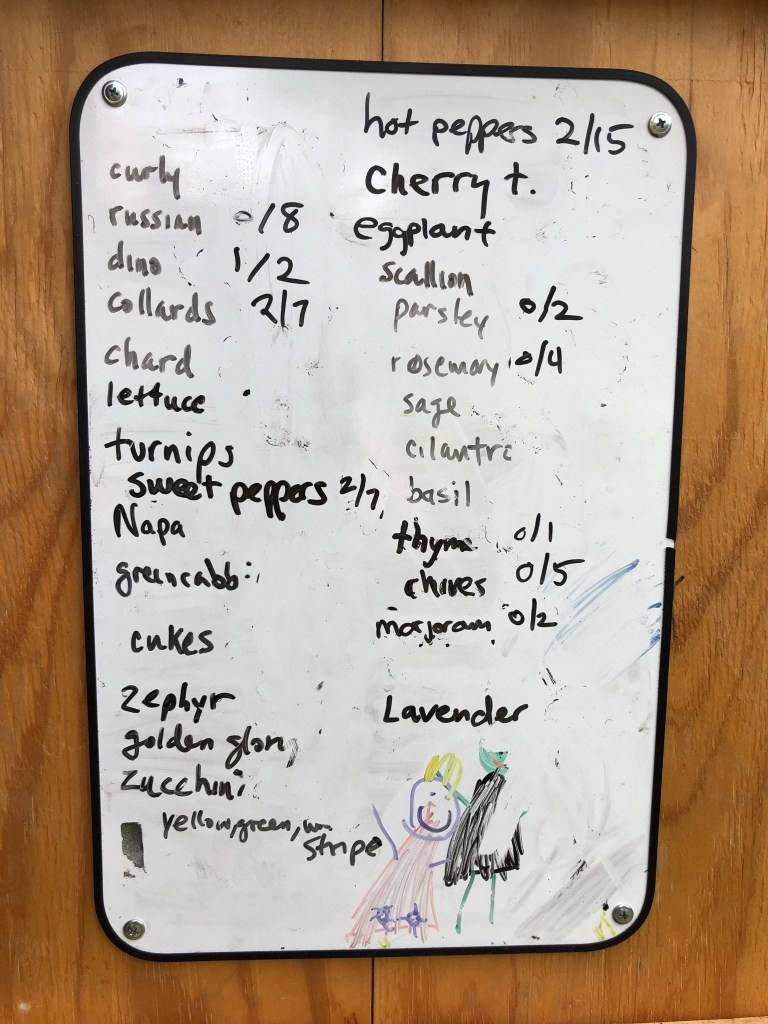 curly
russian 0/8
dino 1/2
collards 2/7
chard
lettuce
turnips
sweet peppers 2/7
Napa
greencabb
cukes
Zephyr
golden glory
Zucchini
yellow, green,
stripe
hot peppers 2/15
Cherry t.
eggplant
scallion
parsley 0/2
rosemary 0/4
sage
cilantro
basil
thyme 0/1
chives 0/5
marjoram 0/2
Lavender